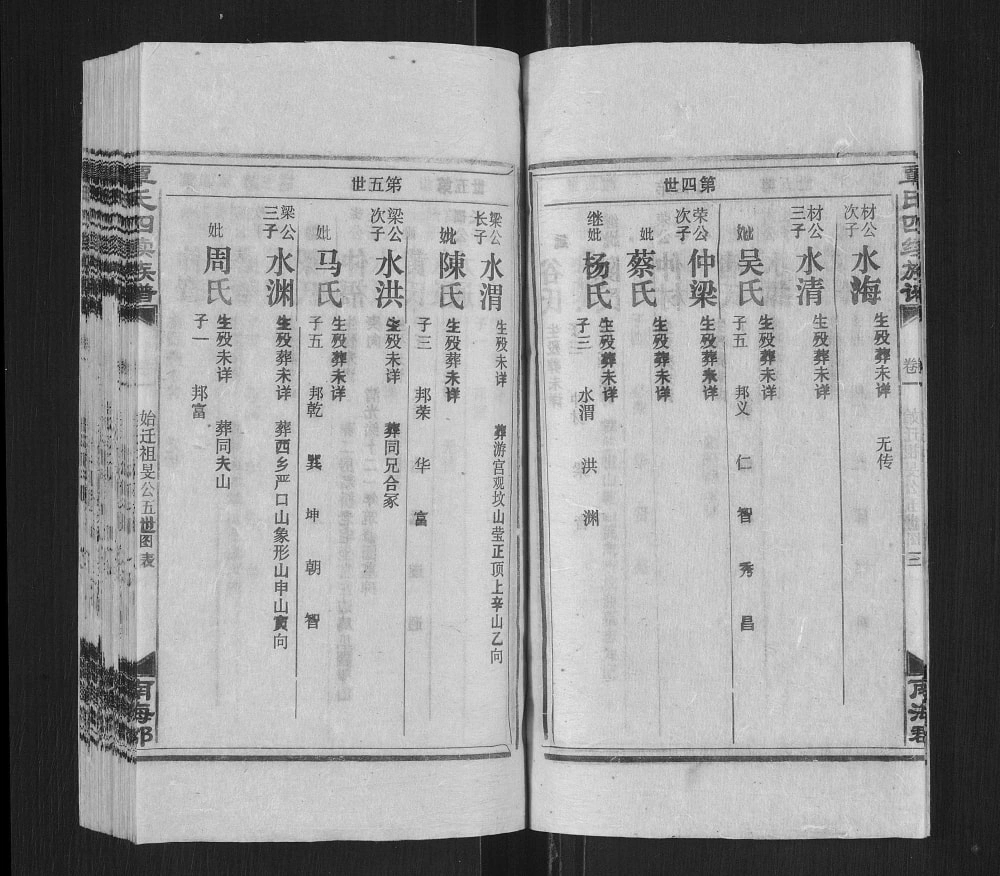 第四世
材公次子
水海
生殁葬未详 无传
材公三子
水清
生殁葬未详
妣
吴氏
生殁葬未详
子五 邦义 仁 智 秀 昌
荣公次子
仲梁
生殁葬未详
妣
蔡氏
生殁葬未详
继妣
杨氏
生殁葬未详
子三 水渭 洪 渊
第五世
梁公长子
水渭
生殁未详 葬游宫观坟山莹正顶上辛山乙向
妣
陳氏
生殁葬未详
子三 邦荣 华 富
梁公次子
水洪
生殁未详 葬同兄合冢
妣
马氏
生殁葬未详
子五 邦乾 巽 坤 朝 智
梁公三子
水渊
生殁葬未详 葬西乡严口山象形山申山寅向
妣
周氏
生殁未详 葬同夫山
子一 邦富
覃氏四续族谱
始迁祖旻公五世图表
南海郡
卷一
三